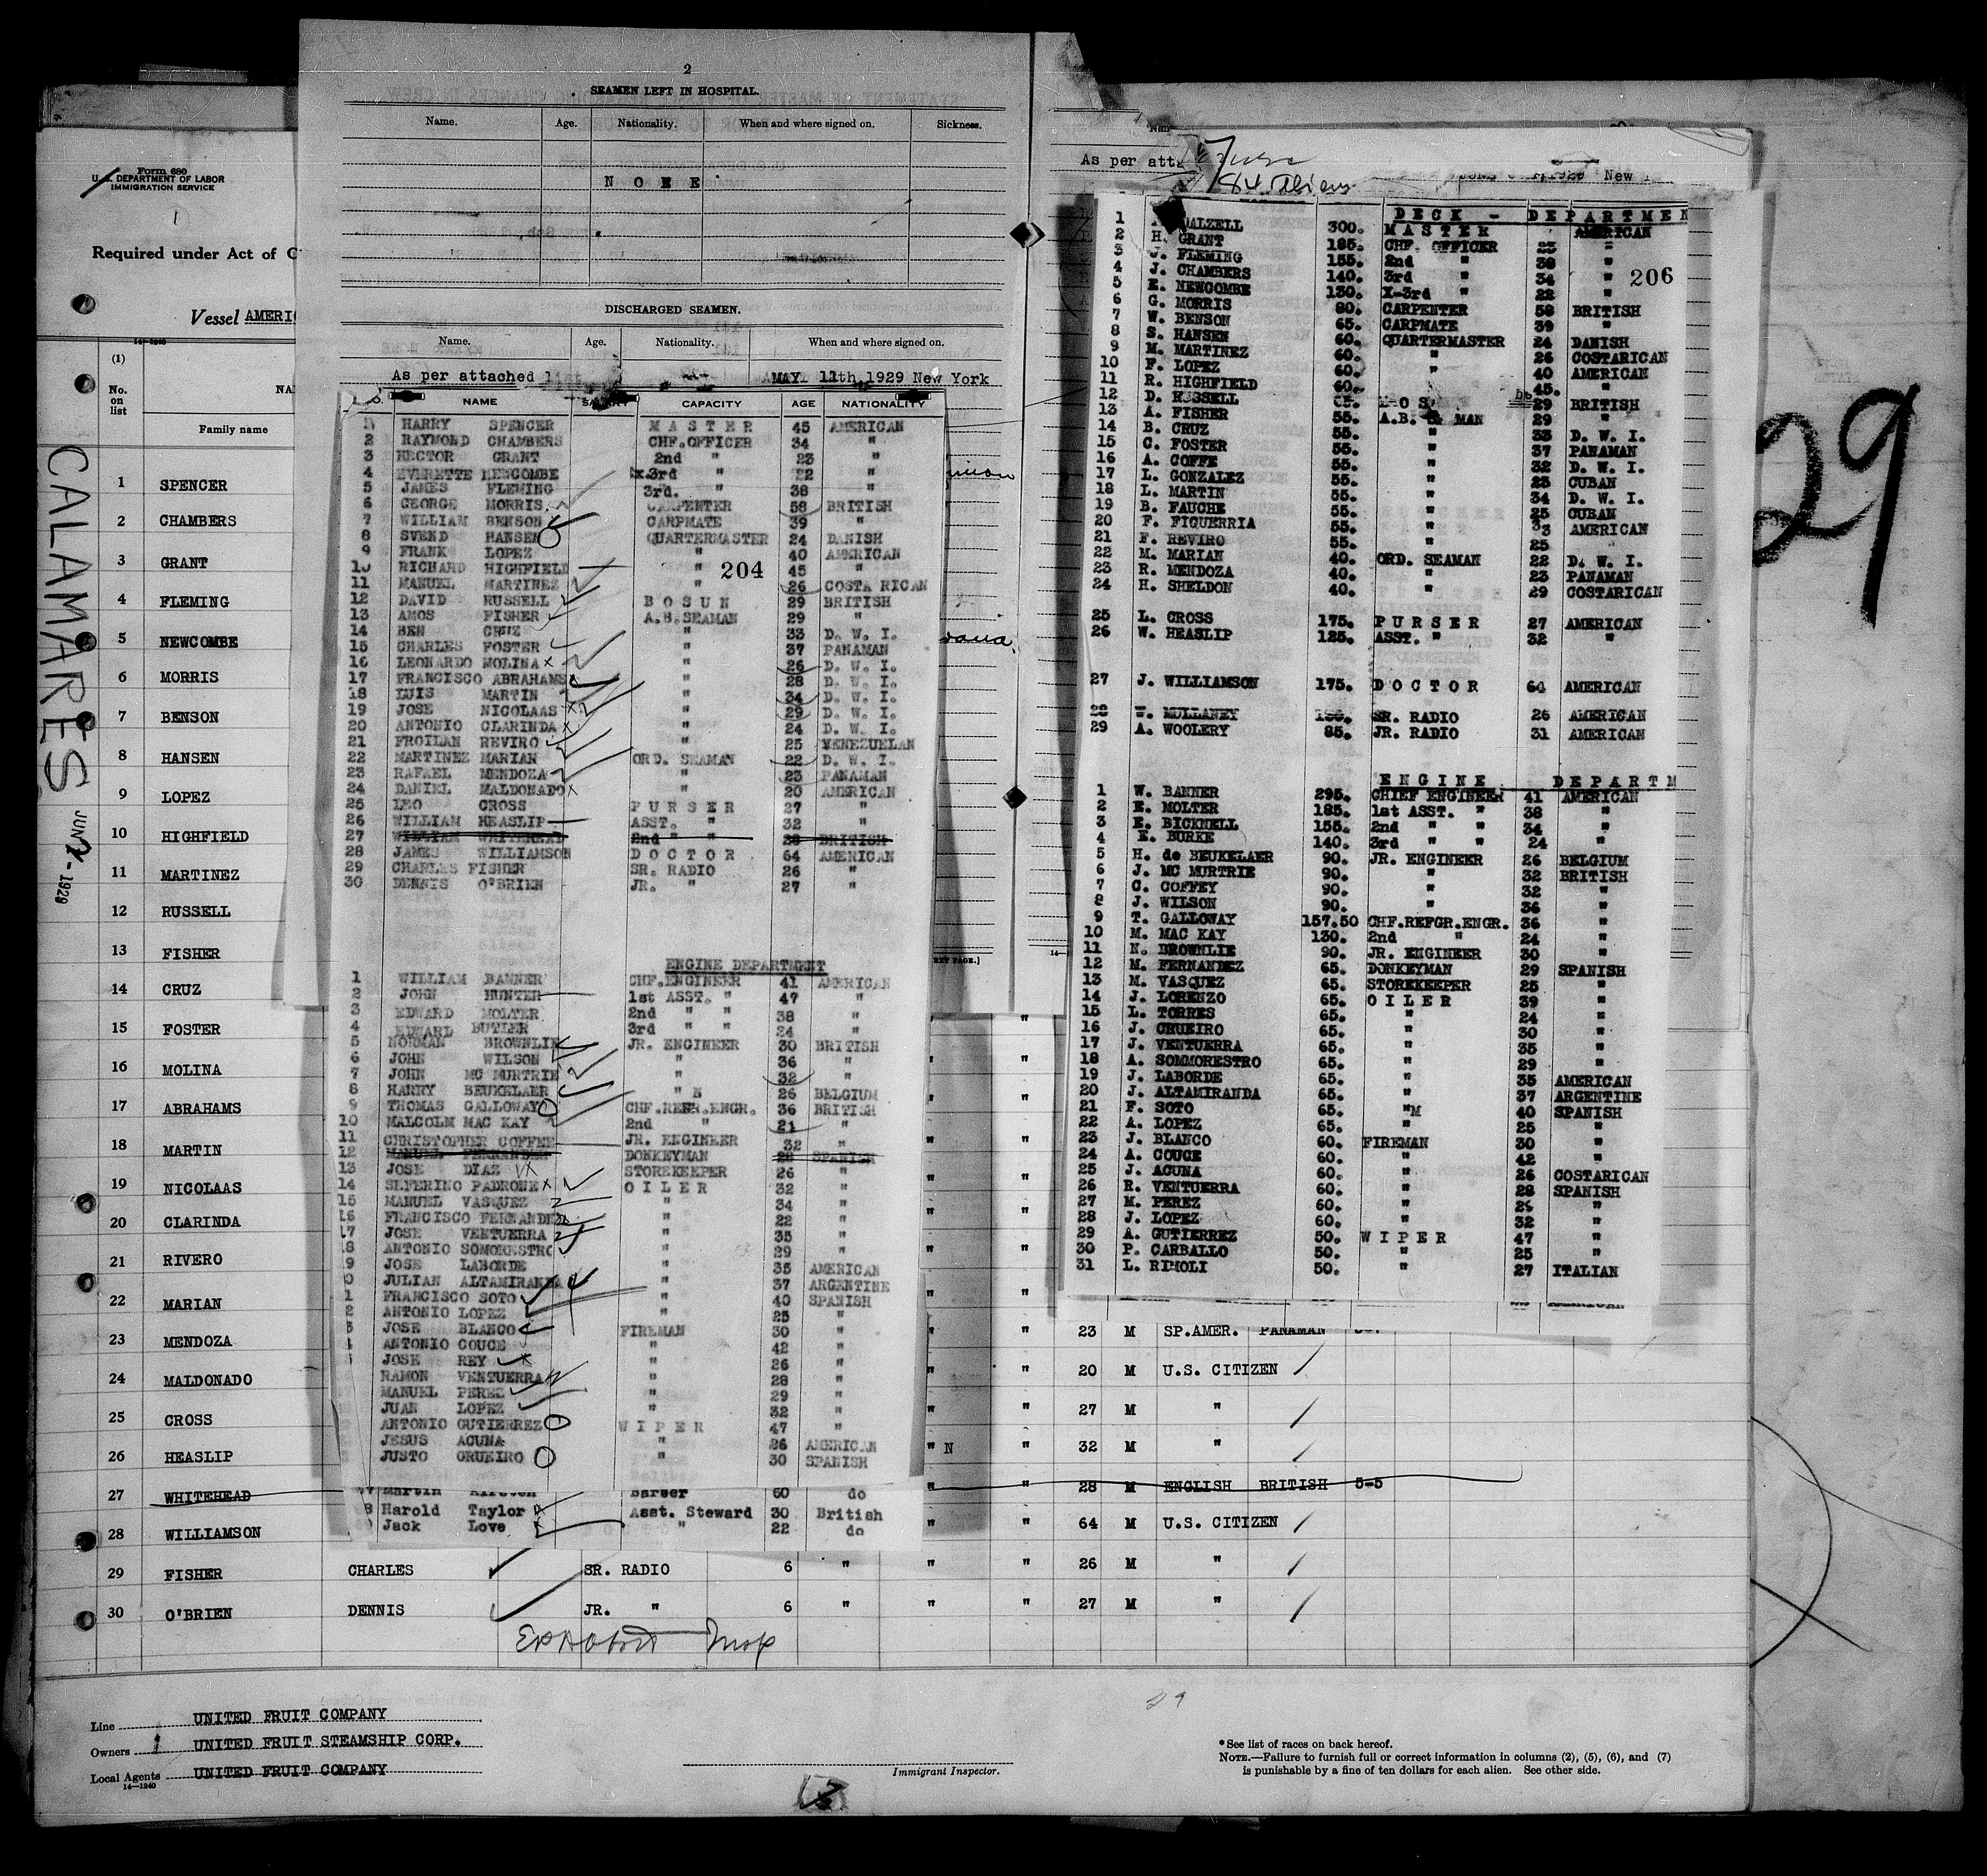 Form 680
U. S. DEPARTMENT OF LABOR
IMMIGRATION SERVICE
1
Required under Act of C
Vessel AMERIC
14-1240
(1)
No. on list
NA
Family name
CALAMARES
JUN 1929
1 SPENCER
2 CHAMBERS
3 GRANT
4 FLEMING
5 NEWCOMBE
6 MORRIS
7 BENSON
8 HANSEN
9 LOPEZ
10 HIGHFIELD
11 MARTINEZ
12 RUSSELL
13 FISHER
14 CRUZ
15 FOSTER
16 MOLINA
17 ABRAHAMS
18 MARTIN
19 NICOLAAS
20 CLARINDA
21 RIVERO
22 MARIAN
23 MENDOZA
24 MALDONADO
25 CROSS
26 HEASLIP
27 WHITEHEAD
28 WILLIAMSON
29 FISHER CHARLES SR. RADIO 6 " " " 26 M "
30 O'BRIEN DENNIS JR. " 6 " " " 27 M "
2
SEAMEN LEFT IN HOSPITAL.
Name. Age. Nationality. When and where signed on. Sickness.
N O N E
DISCHARGED SEAMEN.
Name. Age. Nationality. When and where signed on.
As per attached list MAY 11th 1929 New York
NAME SALARY CAPACITY AGE NATIONALITY
1 HARRY SPENCER M A S T E R 45 AMERICAN
2 RAYMOND CHAMBERS CHF. OFFICER 34 "
3 HECTOR GRANT 2nd " 23 "
4 EVERETTE NEWCOMBE X-3rd " 22 "
5 JAMES FLEMING 3rd. " 38 "
6 GEORGE MORRIS CARPENTER 58 BRITISH
7 WILLIAM BENSON CARPMATE 39 "
8 SVEND HANSEN QUARTERMASTER 24 DANISH
9 FRANK LOPEZ " 40 AMERICAN
10 RICHARD HIGHFIELD " 45 "
204
11 MANUEL MARTINEZ " 26 COSTA RICAN
12 DAVID RUSSELL B O S U N 29 BRITISH
13 AMOS FISHER A.B. SEAMAN 29 "
14 BEN CRUZ " 33 D. W. I.
15 CHARLES FOSTER " 37 PANAMAN
16 LEONARDO MOLINA " 26 D. W. I.
17 FRANCISCO ABRAHAMS " 28 D. W. I.
18 LUIS MARTIN " 34 D. W. I.
19 JOSE NICOLAAS " 29 D. W. I.
20 ANTONIO CLARINDA " 24 D. W. I.
21 FROILAN REVIRO " 25 VENEZUELAN
22 MARTINEZ MARIAN ORD. SEAMAN 22 D. W. I.
23 RAFAEL MENDOZA " 23 PANAMAN
24 DANIEL MALDONADO " 20 AMERICAN
25 LEO CROSS P U R S E R 27 "
26 WILLIAM HEASLIP ASST. " 32 "
27 WILLIAM WHITEHEAD 2nd " " 28 BRITISH
28 JAMES WILLIAMSON D O C T O R 64 AMERICAN
29 CHARLES FISHER SR. RADIO 26 "
30 DENNIS O'BRIEN JR. " 27 "
ENGINE DEPARTMENT
1 WILLIAM BANNER CHF. ENGINEER 41 AMERICAN
2 JOHN HUNTER 1st ASST. " 47 "
3 EDWARD MOLTER 2nd " " 38 "
4 EDWARD BUTLER 3rd " " 24 "
5 NORMAN BROWNLIE JR. ENGINEER 30 BRITISH
6 JOHN WILSON " 36 "
7 JOHN MC MURTRIE " 32 "
8 HARRY BEUKELAER " 26 BELGIUM
9 THOMAS GALLOWAY CHF. REFR. ENGR. 36 BRITISH
10 MALCOLM MAC KAY 2nd " 21 "
11 CHRISTOPHER COFFEE JR. ENGINEER 32 "
12 MANUEL FERNANDEZ DONKEYMAN 28 SPANISH
13 JOSE DIAZ STOREKEEPER 26 "
14 SEFERINO PADRONE O I L E R 32 "
15 MANUEL VASQUEZ " 34 "
16 FRANCISCO FERNANDEZ " 22 "
17 JOSE VENTUERRA " 35 "
18 ANTONIO SOMORESTRO " 29 "
9 JOSE LABORDE " 35 AMERICAN
0 JULIAN ALTAMIRANDA " 37 ARGENTINE
1 FRANCISCO SOTO " 40 SPANISH
2 ANTONIO LOPEZ " 25 "
3 JOSE BLANCO FIREMAN 30 "
ANTONIO COUCE " 42 "
JOSE REY " 26 "
RAMON VENTUERRA " 28 "
MANUEL PEREZ " 29 "
JUAN LOPEZ " 32 "
ANTONIO GUTIERREZ W I P E R 47 "
JESUS ACUNA " 26 AMERICAN
JUSTO GRUEIRO " 30 SPANISH
Martin Barber 60 do
8 Harold Taylor Asst. Steward 30 British
Jack Love " 22 do
As per atta
84 Aliens
New
D E C K - D E P A R T M E N
1 DALZELL 300. M A S T E R AMERICAN
2 H. GRANT 185. CHF. OFFICER 23 "
3 J. FLEMING 155. 2nd " 38 "
4 J. CHAMBERS 140. 3rd " 34 "
206
5 E. NEWCOMBE 130. X-3rd " 22 "
6 G. MORRIS 80. CARPENTER 58 BRITISH
7 W. BENSON 65. CARPMATE 39 "
8 S. HANSEN 60. QUARTERMASTER 24 DANISH
9 M. MARTINEZ 60. " 26 COSTARICAN
10 F. LOPEZ 60. " 40 AMERICAN
11 R. HIGHFIELD 60. 45. "
12 D. RUSSELL 65. 29 BRITISH
13 A. FISHER 55. A.B. MAN 29 "
14 B. CRUZ 55. " 33 D. W. I.
15 C. FOSTER 55. " 37 PANAMAN
16 A. COFFE 55. " 32 D. W. I.
17 L. GONZALEZ 55. " 23 CUBAN
18 L. MARTIN 55. " 34 D. W. I.
19 B. FAUCHE 55. " 25 CUBAN
20 F. FIGUERRIA 55. " 33 AMERICAN
21 F. REVIRO 55. " 25 "
22 M. MARIAN 40. ORD. SEAMAN 22 D. W. I.
23 R. MENDOZA 40. " 23 PANAMAN
24 H. SHELDON 40. " 29 COSTARICAN
25 L. CROSS 175. P U R S E R 27 AMERICAN
26 W. HEASLIP 125. ASST. " 32 "
27 J. WILLIAMSON 175. D O C T O R 64 AMERICAN
28 W. MULLANEY SR. RADIO 26 AMERICAN
29 A. WOOLERY 85. JR. RADIO 31 AMERICAN
E N G I N E D E P A R T M
1 W. BANNER 295. CHIEF ENGINEER 41 AMERICAN
2 E. MOLTER 185. 1st ASST. " 38 "
3 E. BICKNELL 155. 2nd " " 34 "
4 E. BURKE 140. 3rd " " 24 "
5 H. de BEUKELAER 90. JR. ENGINEER 26 BELGIUM
6 J. MC MURTRIE 90. " 32 BRITISH
7 C. COFFEY 90. " 32 "
8 J. WILSON 90. " 36 "
9 T. GALLOWAY 157.50 CHF.REFGR.ENGR. 36 "
10 M. MAC KAY 130. 2nd " 24 "
11 N. BROWNLIE 90. JR. ENGINEER 30 "
12 M. FERNANDEZ 65. DONKEYMAN 29 SPANISH
13 M. VASQUEZ 65. STOREKEEPER 25 "
14 J. LORENZO 65. O I L E R 39 "
15 L. TORRES 65. " 24 "
16 J. CRUEIRO 65. " 30 "
17 J. VENTUERRA 65. " 35 "
18 A. SOMMORESTRO 65. " 29 "
19 J. LABORDE 65. " 35 AMERICAN
20 J. ALTAMIRANDA 65. " 37 ARGENTINE
21 F. SOTO 65. "M 40 SPANISH
22 A. LOPEZ 65. " 25 "
23 J. BLANCO 60. FIREMAN 30 "
24 A. COUCE 60. " 42 "
25 J. ACUNA 60. " 26 COSTARICAN
26 R. VENTUERRA 60. " 28 SPANISH
27 M. PEREZ 60. " 29 "
28 J. LOPEZ 60. " 32 "
29 A. GUTIERREZ 50. W I P E R 47 "
30 P. CARBALLO 50. " 25 "
31 L. RIMOLI 50. " 27 ITALIAN
" " 23 M SP.AMER. PANAMAN
" " 20 M U.S. CITIZEN
" " 27 M "
" N " 32 M "
" 28 M ENGLISH BRITISH 5-5
" " 64 M U.S. CITIZEN
29
29
Line UNITED FRUIT COMPANY
Owners UNITED FRUIT STEAMSHIP CORP.
Local Agents UNITED FRUIT COMPANY
14-1240
Immigrant Inspector.
* See list of races on back hereof.
NOTE.—Failure to furnish full or correct information in columns (2), (5), (6), and (7)
is punishable by a fine of ten dollars for each alien. See other side.